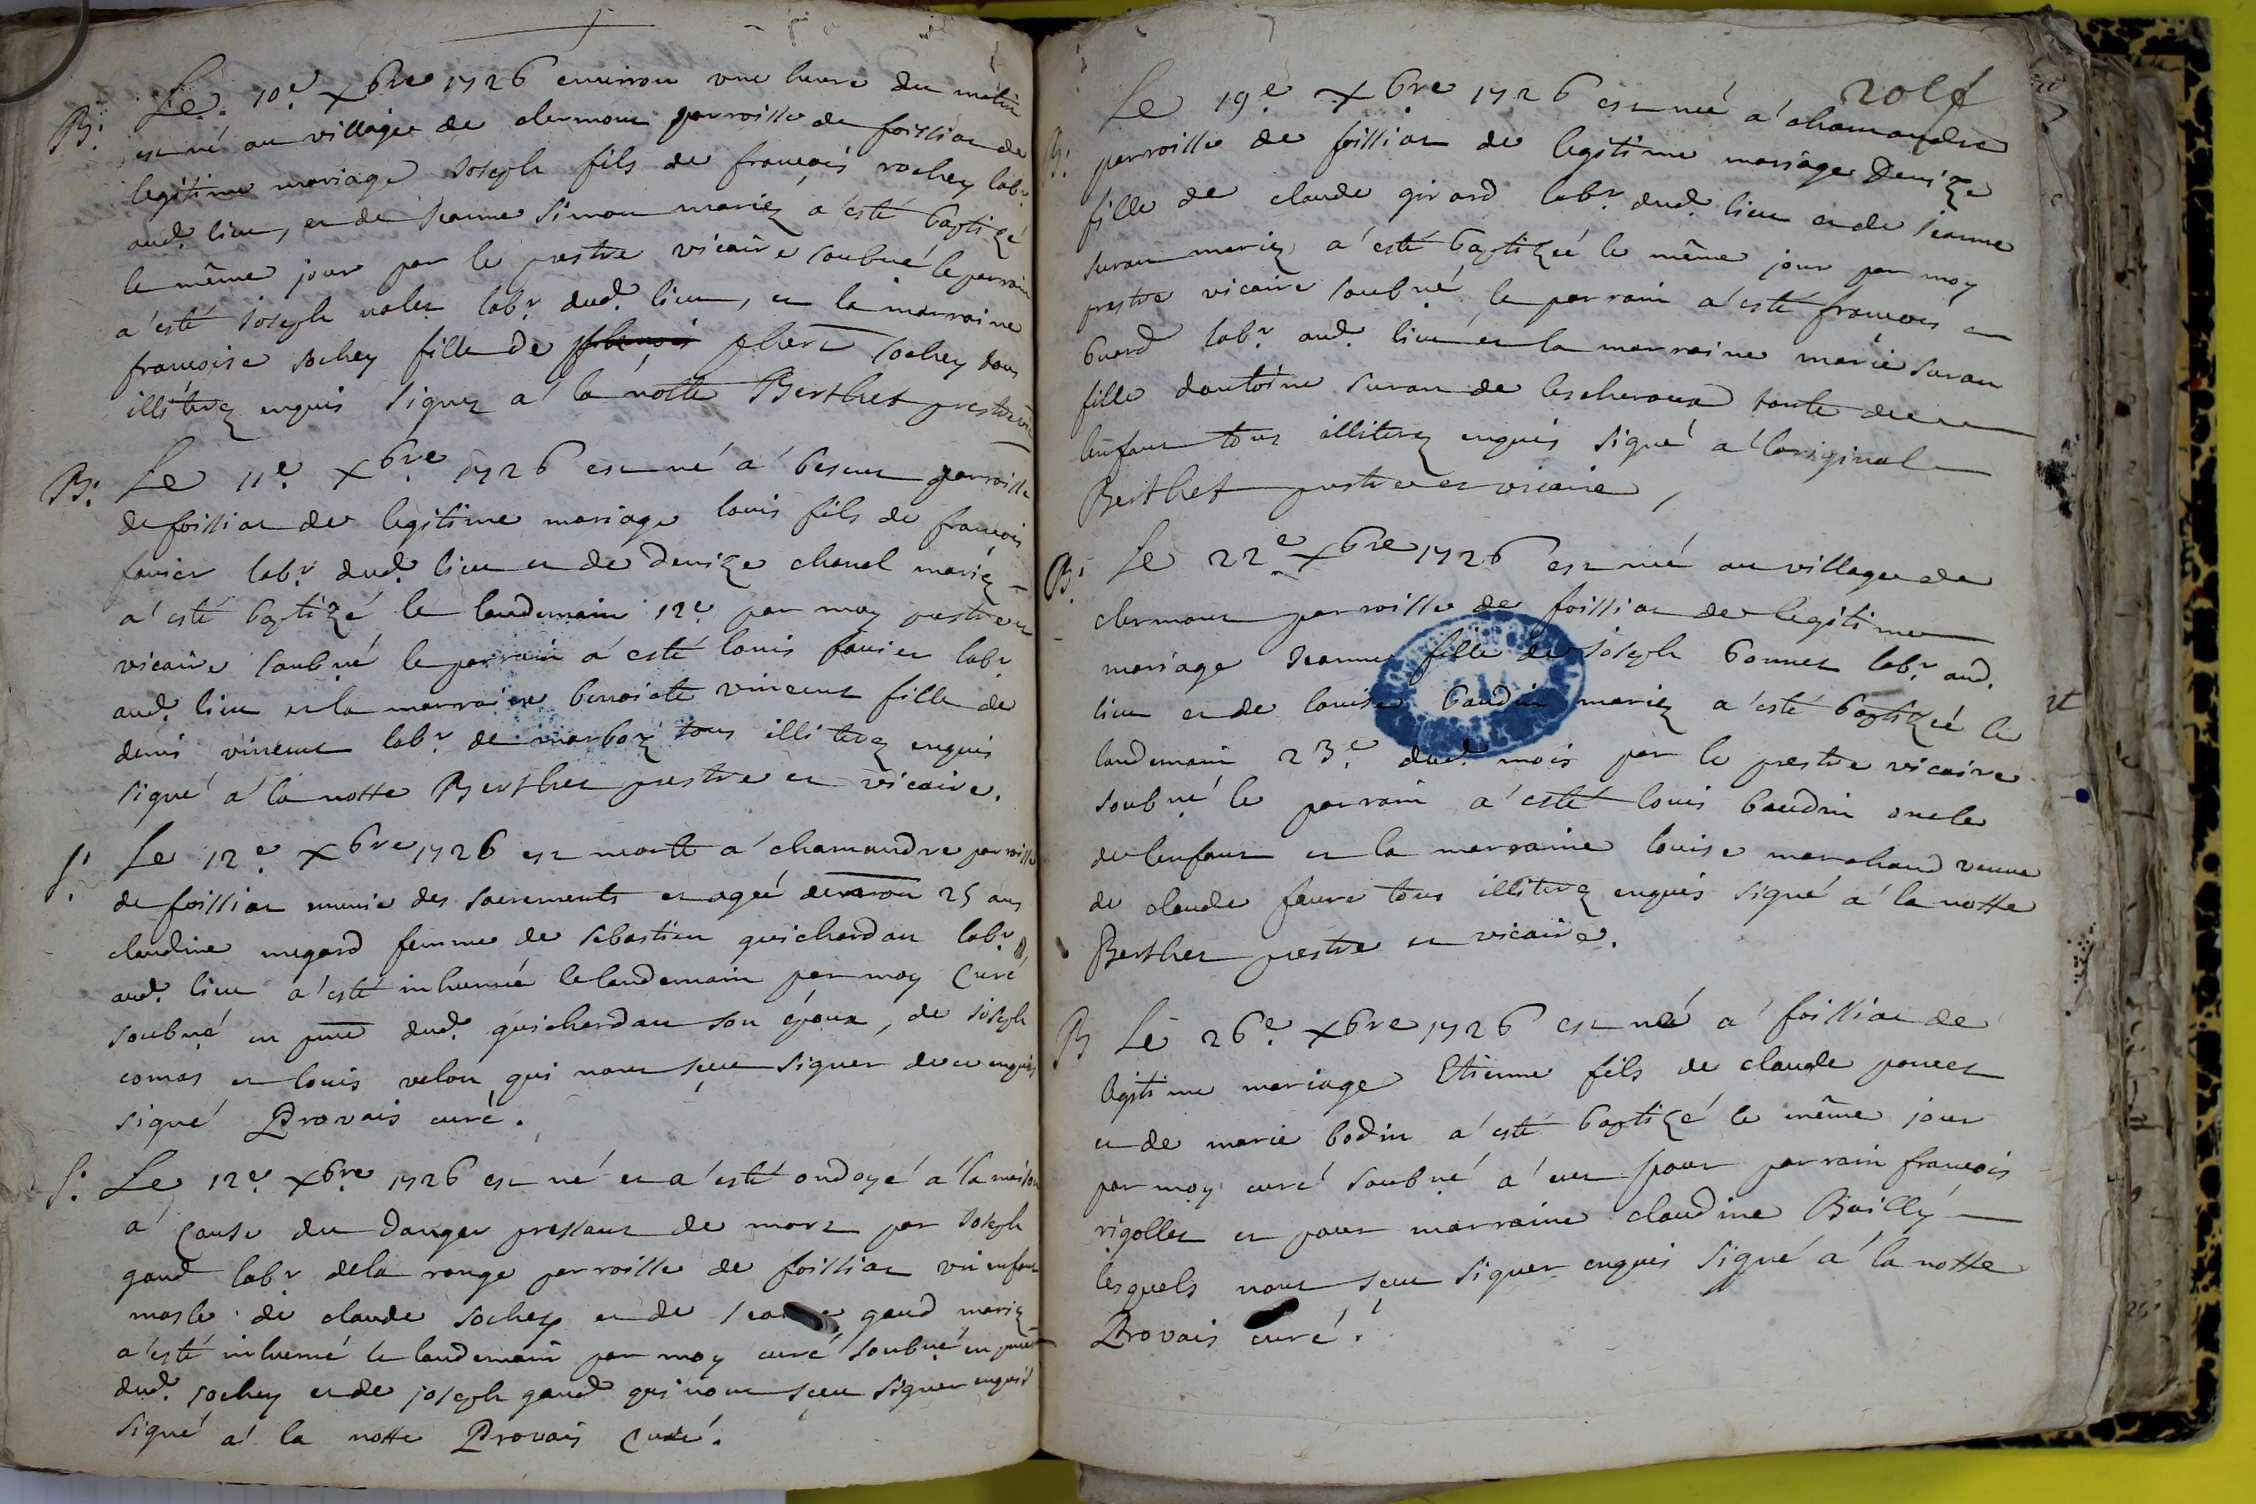 B. Le 10e Xbre 1726 environ une heure du matin
est né au village de clermont parroisse de foissiat de
legitime mariage Joseph fils de françois rochey labr.
aud. lieu, et de Jeanne Simon mariez a esté baptizé
le même jour par le prestre vicaire soubné le parrain
a esté Joseph labr. dud. lieu, et la marraine
françoise sochey fille de phert sochey tous
illiterez enquis signez a la notte Berthet prestre vic
B. Le 11e Xbre 1726 est né a besent parroisse
de foissiat de legitime mariage louis fils de françois
favier labr. dud. lieu et de Denize chanel mariez
a esté baptizé le landemain 12e par moy prestre et
vicaire soubné le parrain a esté louis favier labr.
aud. lieu et la marraine benoiste vincent fille de
denis vincent labr. de marboz tous illiterez enquis
signé a la notte Berthet prestre et vicaire.
S. Le 12e Xbre 1726 est morte a chamandre parroisse
de foissiat munie des sacrements et ageé denviron 25 ans
claudine megard femme de sebastien guichardan labr.
aud. lieu a esté inhumé le landemain par moy Curé
soubné en pnce dud. guichardan son époux, de Joseph
comas et louis velon qui nont sceu signer de ce enquis
signé Provais curé.
S. Le 12e Xbre 1726 est né et a esté ondoyé a la maison
a Cause du danger pressant de mort par Joseph
gaud labr. dela ronge parroisse de foissiat un enfant
masle de claude sochey et de gaud mariez
a esté inhumé le landemain par moy curé soubné en pnce
dud. sochey et de joseph gaud qui nont sceu signer enquis
signé a la notte Provais Curé.
20e f
B. Le 19e Xbre 1726 est né a chamandre
parroisse de foissiat de legitime mariage Denize
fille de claude girard labr. dud. lieu et de Jeanne
suran mariez a esté baptizeé le même jour par moy
prestre vicaire soubné, le parrain a esté françois
buard labr. aud. lieu et la marraine marie suran
fille dantoine suran de lescheroux tante de
lenfant tous illiterez enquis signé a loriginal
Berthet prestre et vicaire,
B. Le 22e Xbre 1726 est né au village de
clermont parroisse de foissiat de legitime
mariage Jeanne fille de Joseph bonnet labr. aud.
lieu et de louise baudin mariez a esté baptizeé le
landemain 23e dud. mois par le prestre vicaire
soubné le parrain a esté louis baudin oncle
de lenfant et la marraine louise marchand veuve
de claude favre tous illiterez enquis signé a la notte
Berthet prestre et vicaire.
B Le 26e Xbre 1726 est né a foissiat de
legitime mariage Etienne fils de claude poncet
et de marie bodin a esté baptizé le même jour
par moy curé soubné a eut pour parrain françois
rigollet et pour marraine claudine Bailly
lesquels nont sceu signer enquis signé a la notte
Provais curé.